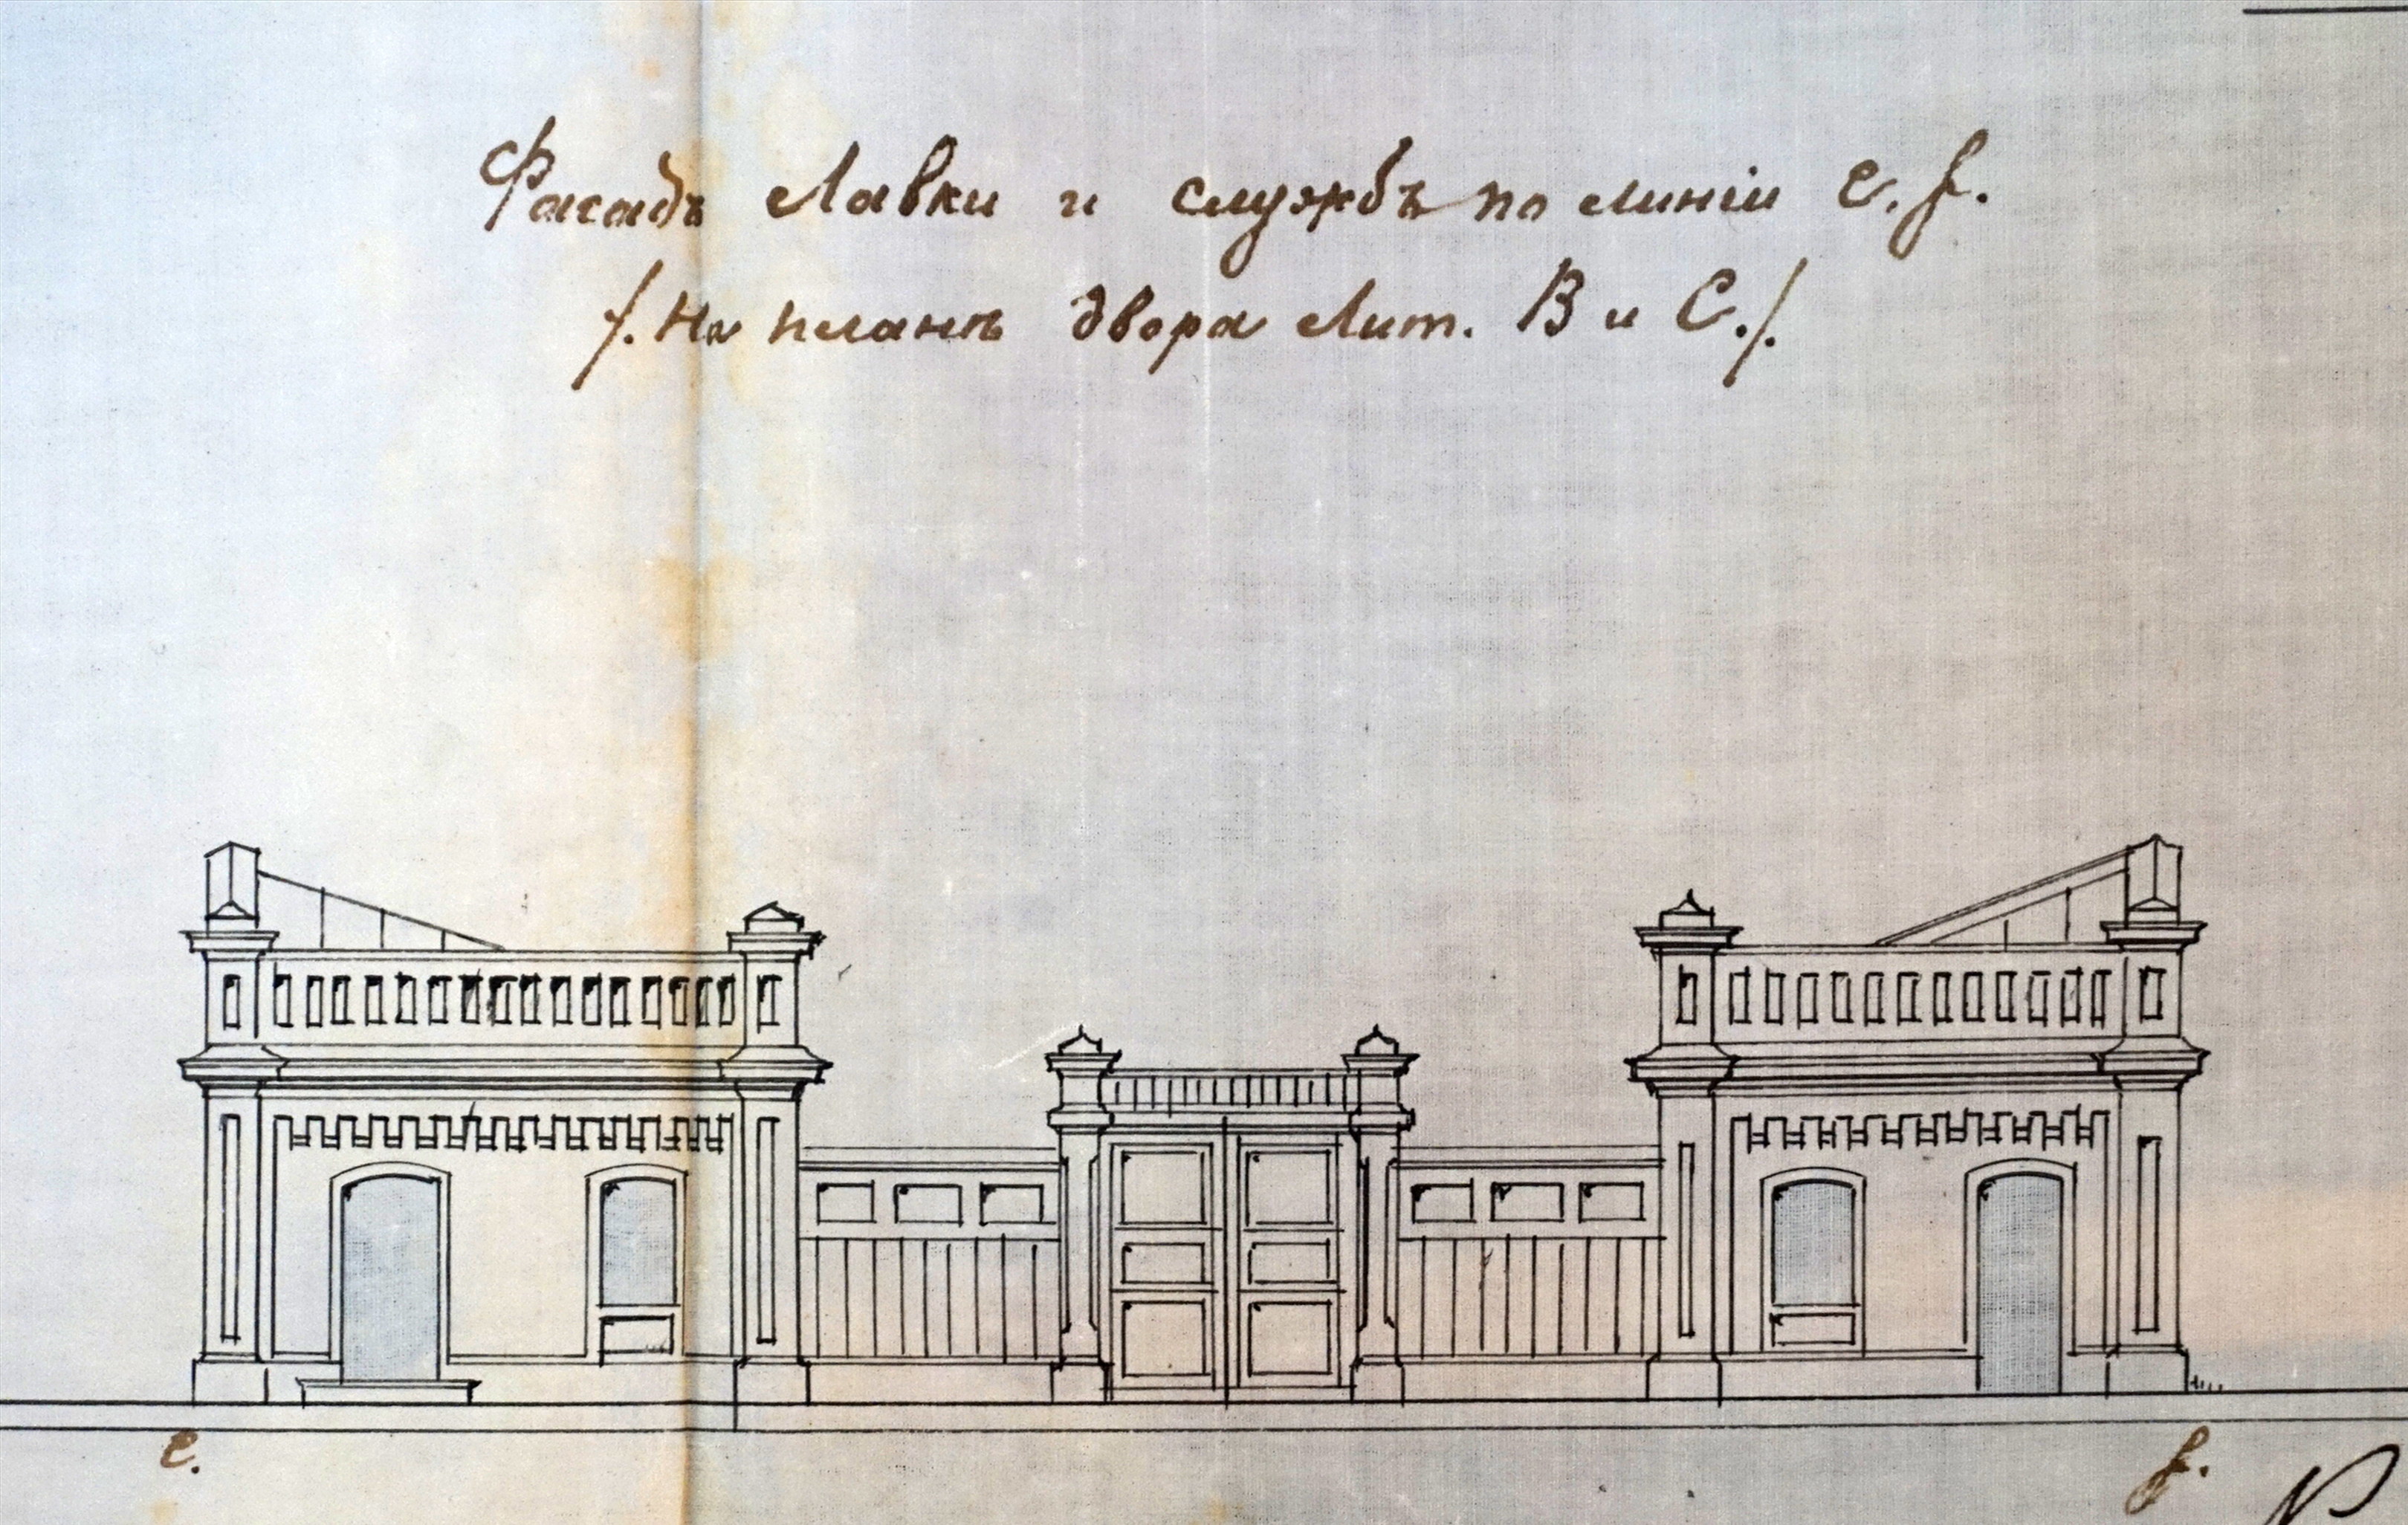 Фасадъ Лавки и службъ по линіи e. f.
/. На планѣ двора Лит. В и С./.
e.
f.